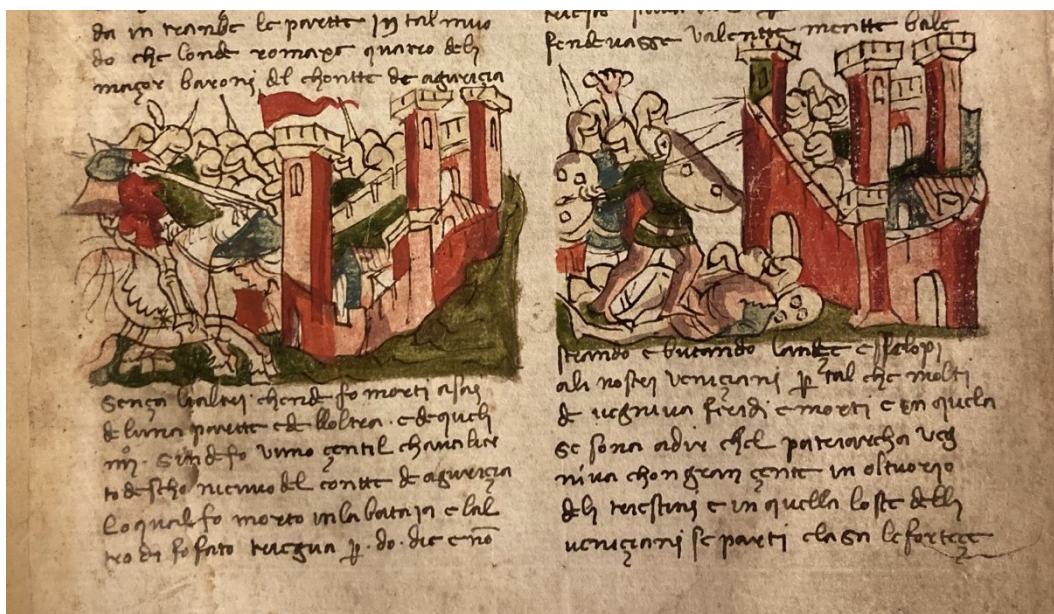 da in tranbe le parette in tal muo
do che londe romaxe quatro deli
maçor baroni del chontte de aguricia
sença li altri chende fo morti asai
de luna parette e de loltra. e de queli
iiij. sinde fo vnno çentil chavalier
todescho nievuo del contte de aguriçia
lo qual fo morto in la bataia e lal
tro di fo fato triegua p. do. die e no
fendevasse valentte mentte bale
strando e butando lanze e
ali nostri veniçiani p tal che molti
de vegniva feridi e morti e in quela
se sona a dir chel patriarcha veg
niva chon gran çente in oltuorio
deli triestini e in quella loste delli
veniçiani se parti e lasa le forteze